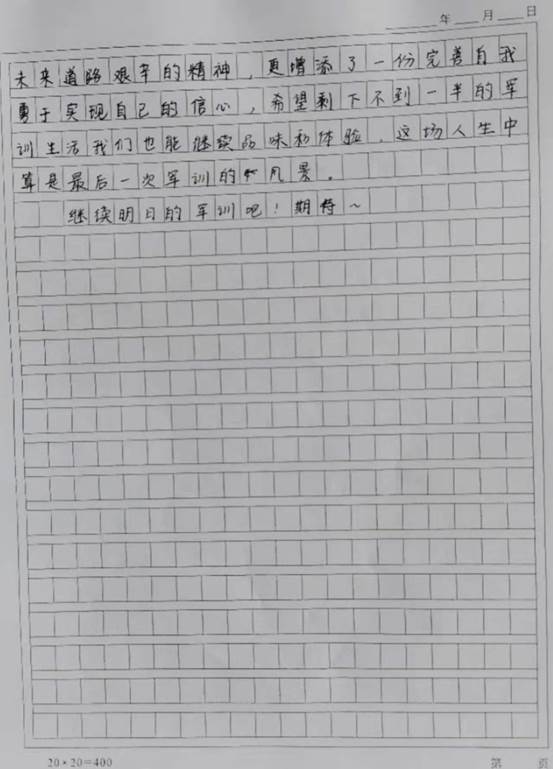 年 月 日
未来道路艰辛的精神，更增添了一份完善自我
勇于实现自己的信心，希望剩下不到一半的军
训生活我们也能继续品味和体验，这场人生中
算是最后一次军训的风景。
继续明日的军训吧！期待~
20×20=400 第 页